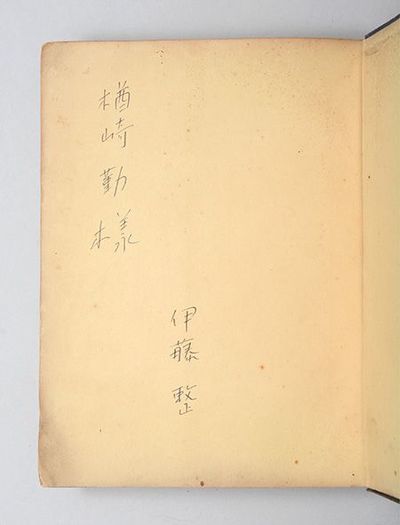 楢崎勤様
伊藤整